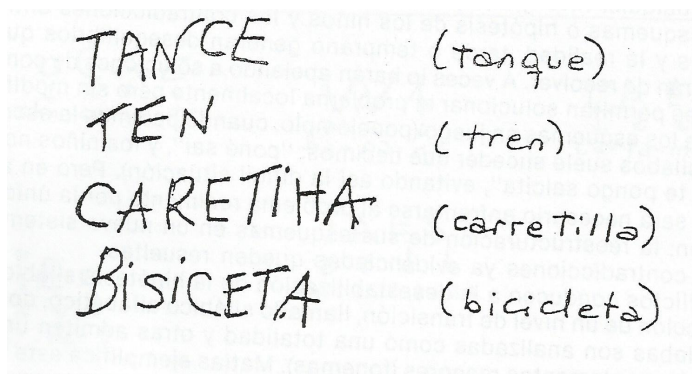 TANCE (tanque)
TEN (tren)
CARETIHA (carretilla)
BISICETA (bicicleta)